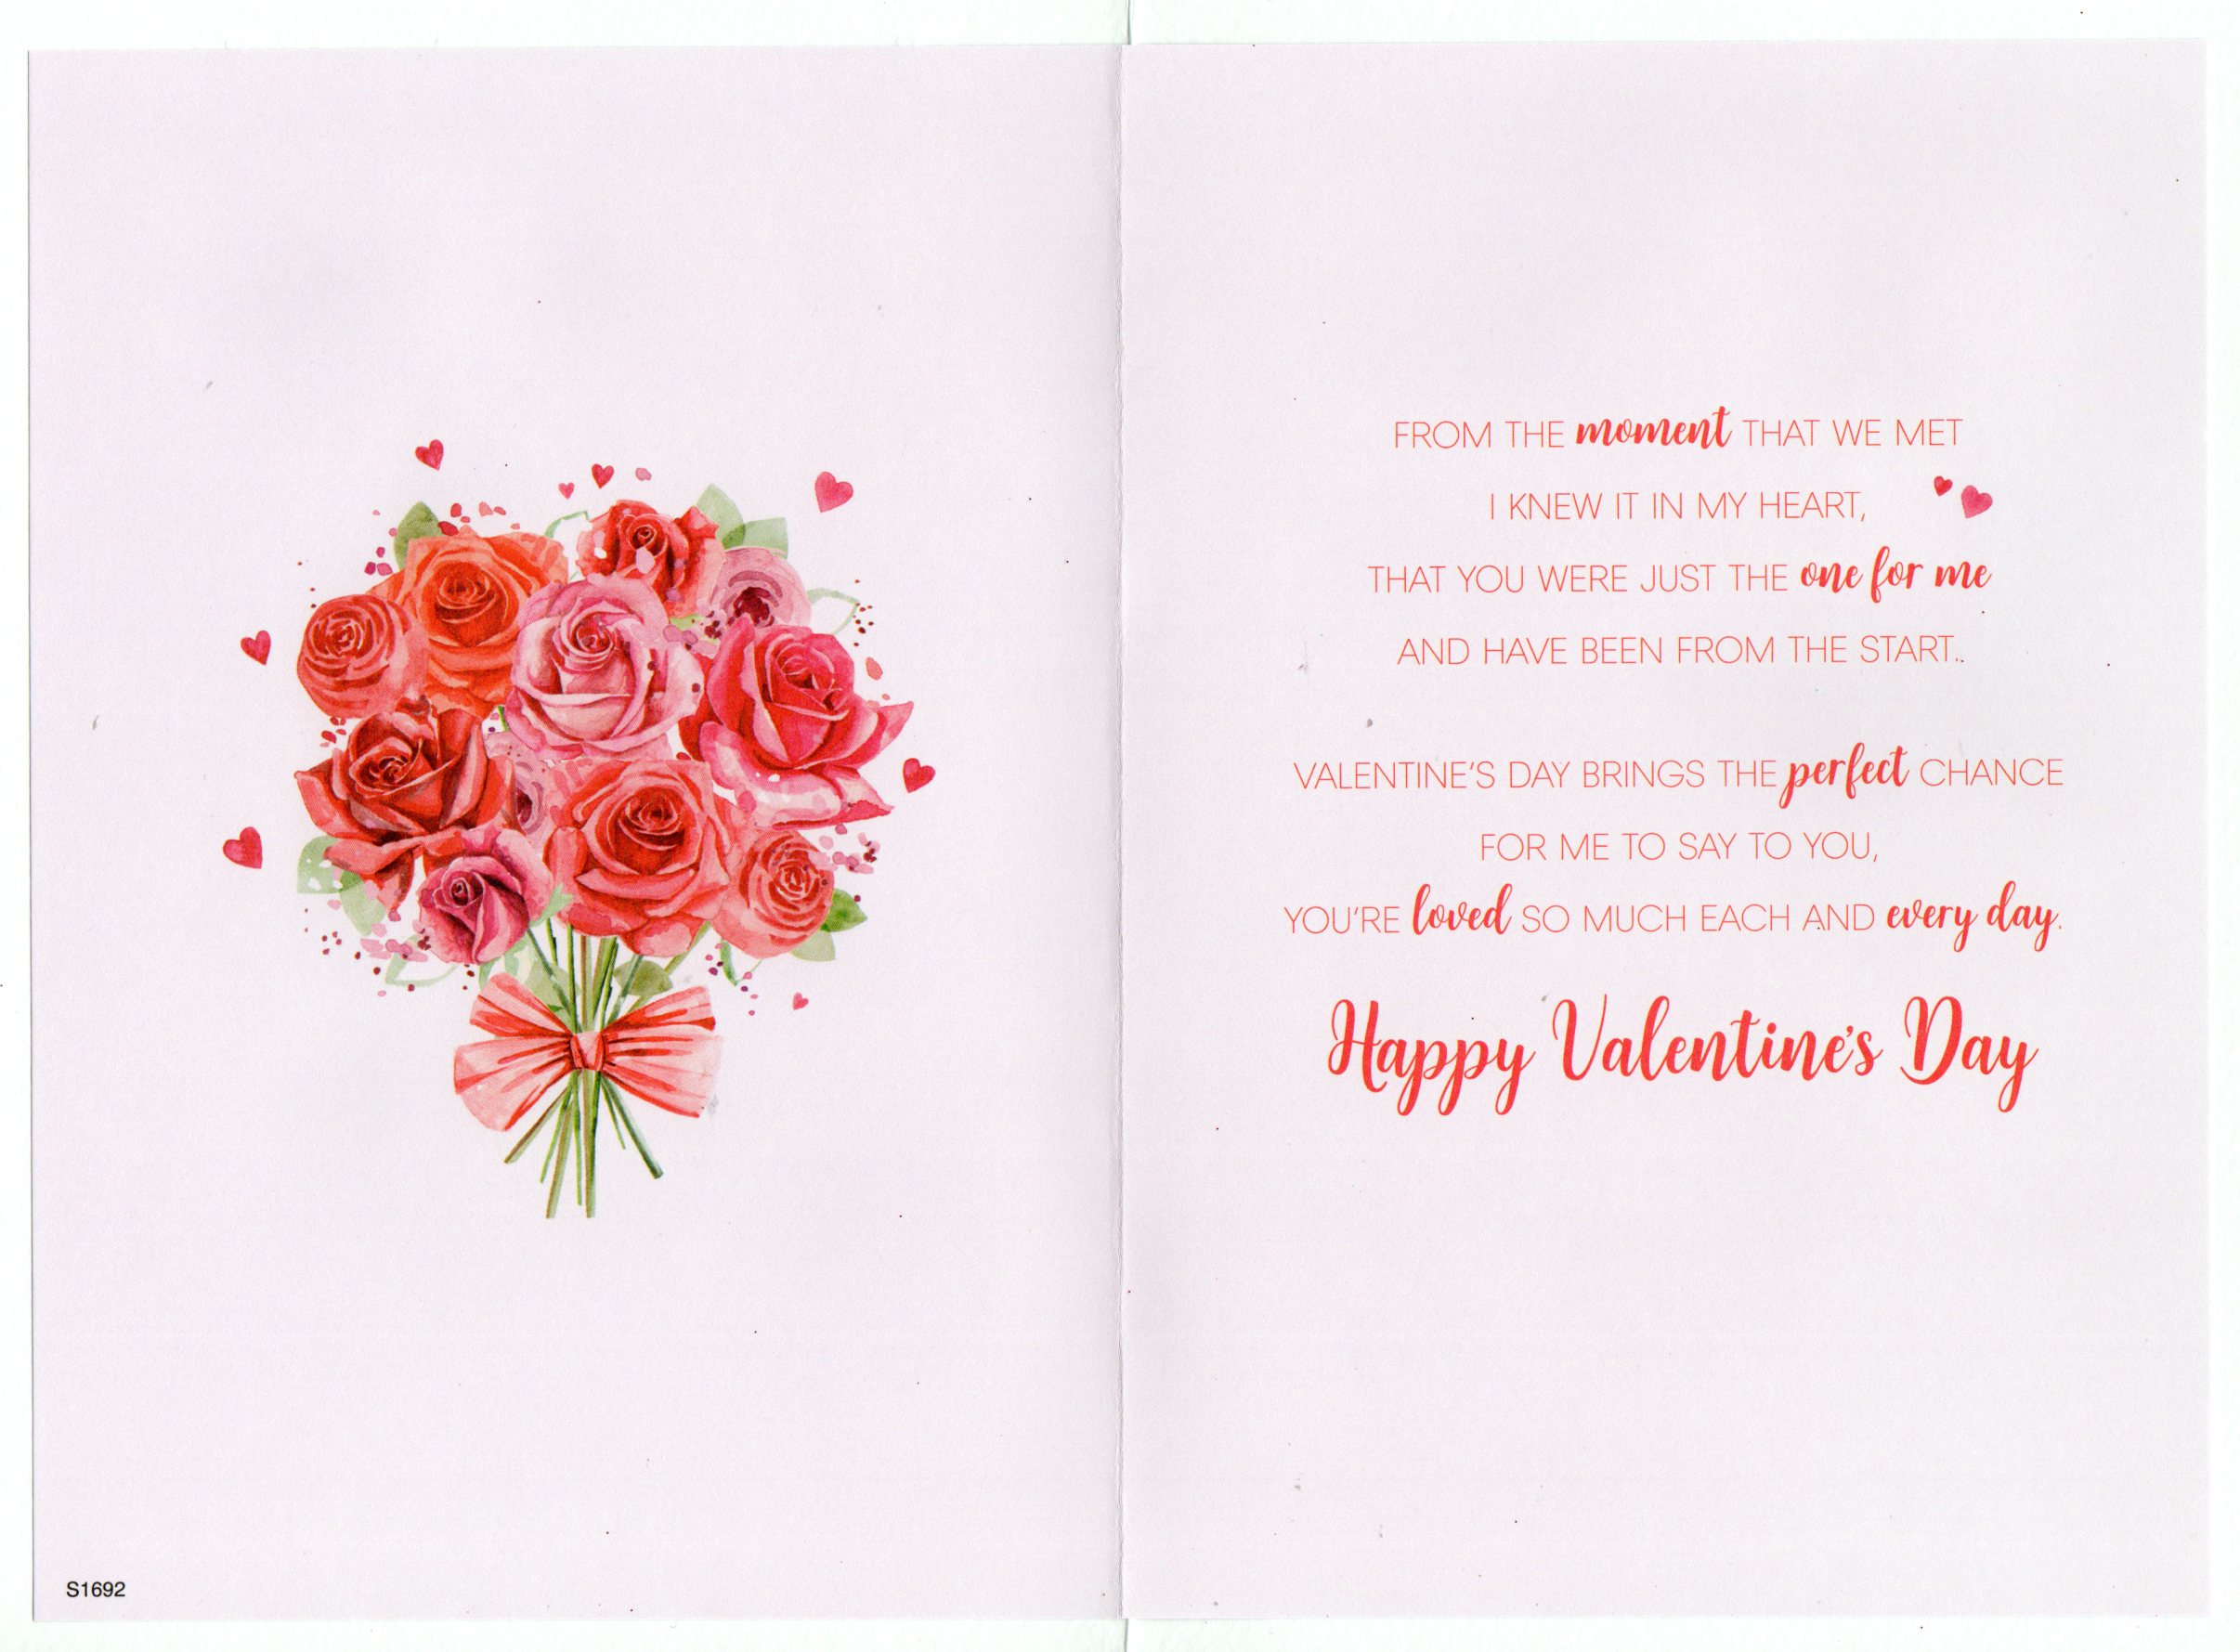 FROM THE moment THAT WE MET
I KNEW IT IN MY HEART,
THAT YOU WERE JUST THE one for me
AND HAVE BEEN FROM THE START..
VALENTINE'S DAY BRINGS THE perfect CHANCE
FOR ME TO SAY TO YOU,
YOU'RE loved SO MUCH EACH AND every day.
Happy Valentine's Day
S1692